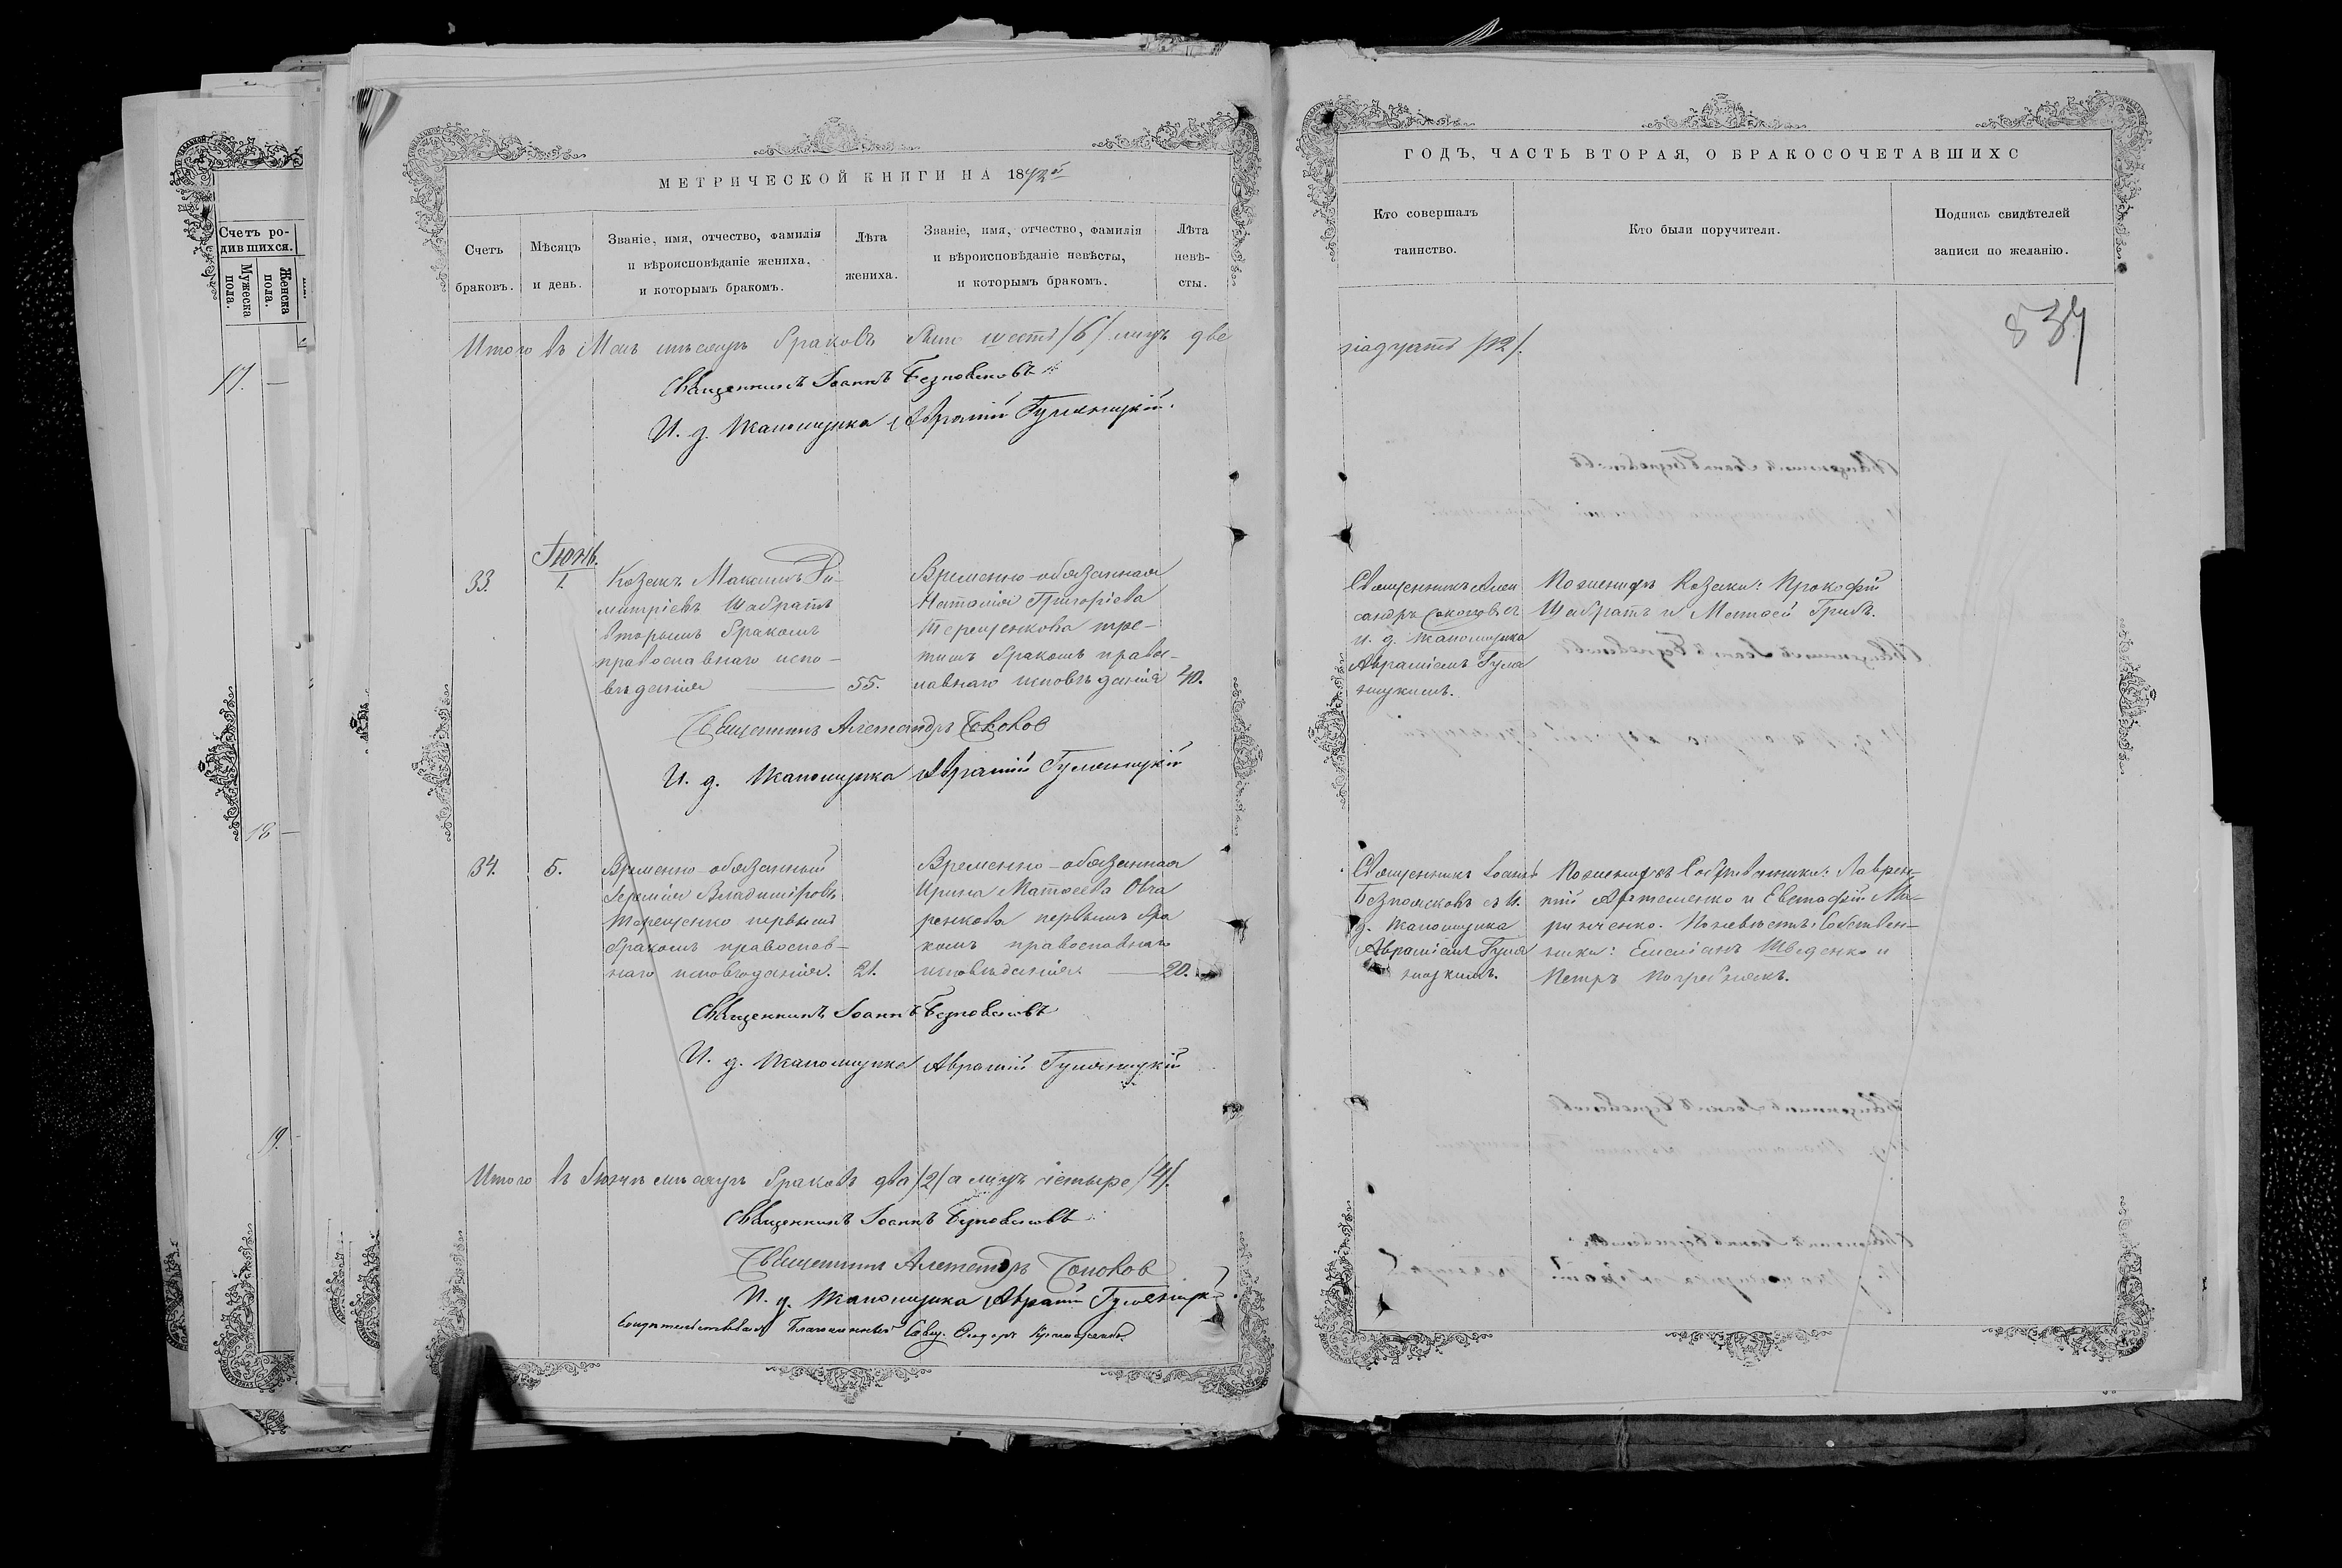 Счетъ ро-
дившихся.
Мужеска
пола.
Женска
пола.
17.
18
19.
МЕТРИЧЕСКОЙ КНИГИ НА 1872й
Счетъ
браковъ.
Мѣсяцъ
и день.
Званіе, имя, отчество, фамилія
и вѣроисповѣданіе жениха,
и которымъ бракомъ.
Лѣта
жениха.
Званіе, имя, отчество, фамилія
и вѣроисповѣданіе невѣсты,
и которымъ бракомъ.
Лѣта
невѣ-
сты.
Итого въ Маѣ мѣсяцѣ браковъ было шесть /6/ лицъ две
Священникъ Іоаннъ
И. д. псаломщика Аврамій Гуляницкій.
Іюнь.
33.
1.
Козакъ Максимъ Ди-
митріевъ Шабратъ
вторымъ бракомъ
православнаго испо-
вѣданія
55.
Временно-обязанная
Наталія Григоріева
Терещенкова тре-
тимъ бракомъ правос-
лавнаго исповѣданія
40.
Священникъ Александръ Соколов
И. д. псаломщика Аврамій Гуляницкій
34.
5.
Временно-обязанный
Іеремія Владиміровъ
Терещенко первымъ
бракомъ православ-
наго исповѣданія.
21.
Временно-обязанная
Ирина Матѳеева Овча
ренкова первымъ бра
комъ православнаго
исповѣданія
20.
Священникъ Іоаннъ
И. д. псаломщика Аврамій Гуляницкій
Итого въ Іюнѣ мѣсяцѣ браковъ два /2/ а лицъ четыре /4/.
Священникъ Іоаннъ
Священникъ Александръ Соколов
И. д. псаломщика Аврамій
Благочинный Свящ.
ГОДЪ, ЧАСТЬ ВТОРАЯ, О БРАКОСОЧЕТАВШИХС
Кто совершалъ
таинство.
Кто были поручители.
Подпись свидѣтелей
записи по желанію.
надцать /12/.
Священникъ Алек
сандръ Соколовъ съ
и. д. псаломщика
Авраміемъ Гуля
ницкимъ.
По женихѣ Козаки: Прокофій
Шабратъ и Матѳей Грибъ.
Священникъ Іоаннъ
съ И.
д. псаломщика
Авраміемъ Гуля
ницкимъ.
По женихѣ Собственники: Лаврен-
тій Артеменко и Евстафій Ма-
ринченко. По невѣстѣ: Собствен-
ники: Емеліанъ Шведенко и
Петръ Погребнякъ.